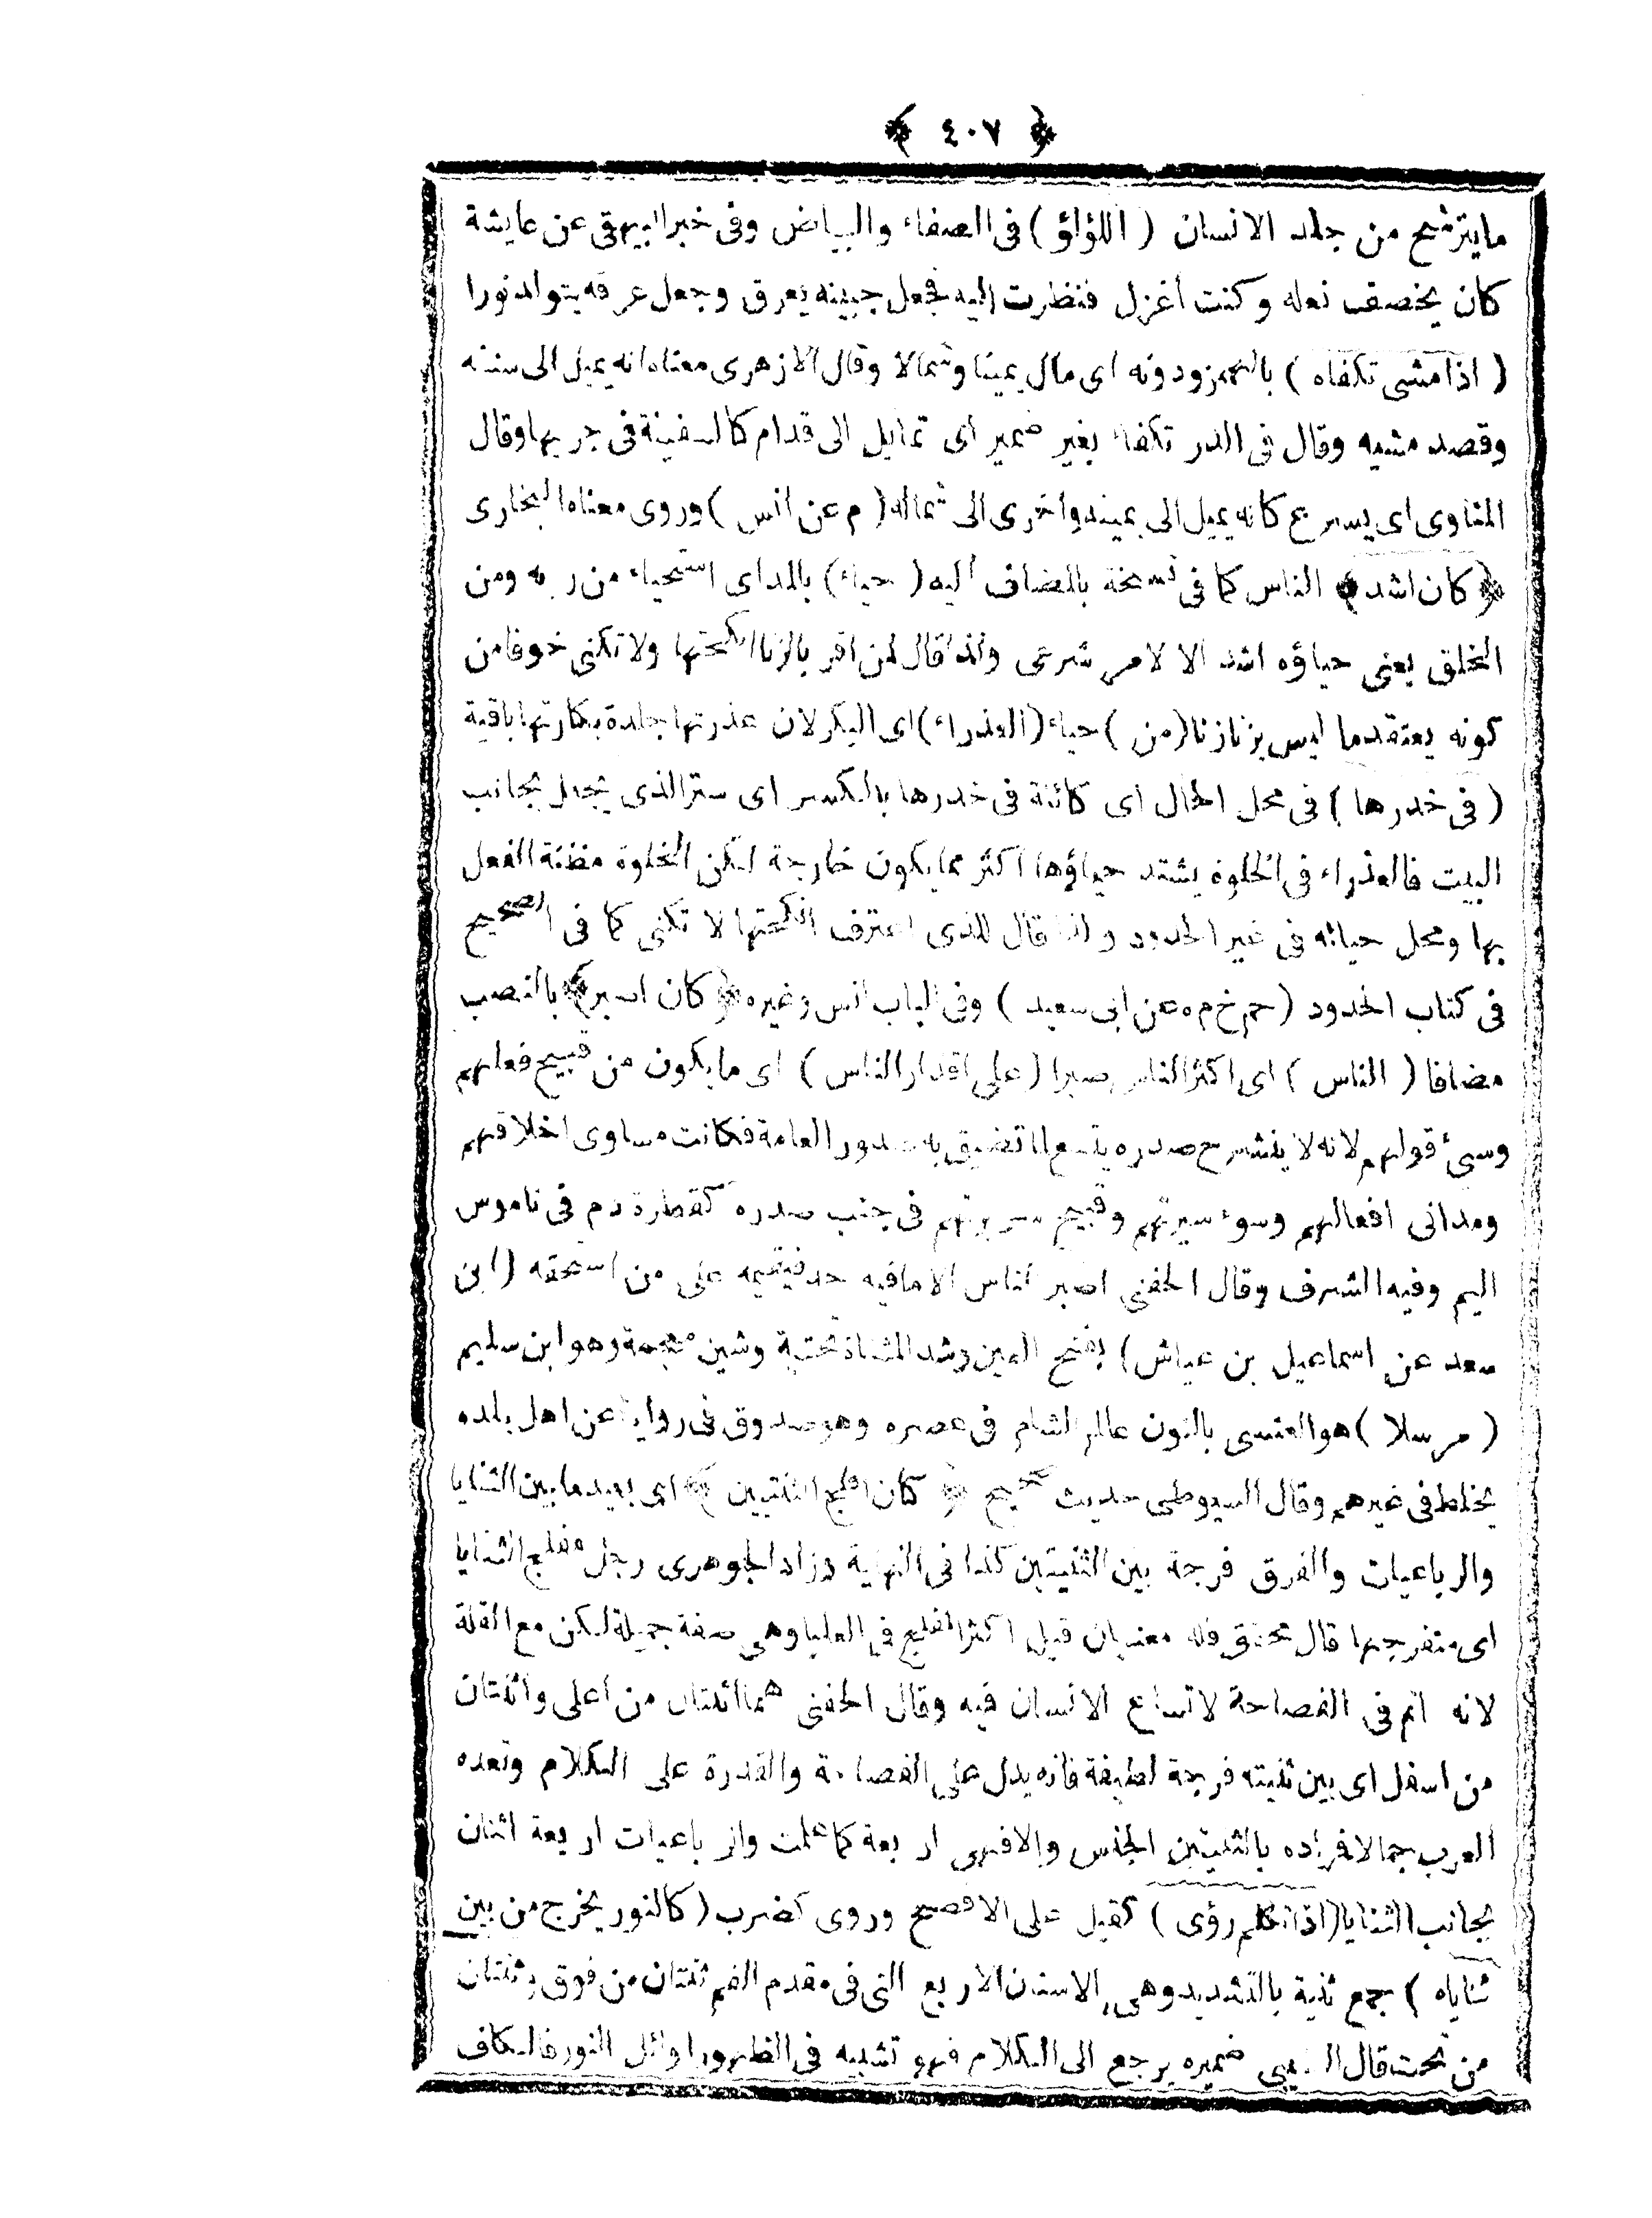 ﴿ ٤٠٧ ﴾
مايترشح من جلد الانسان ( اللؤلؤ ) فى الصفاء والبياض وفى خبر البيهقى عن عايشة
كان يخصف نعله وكنت اغزل فنظرت اليه فجعل جبينه يعرق وجعل عرقه يتولد نورا
( اذا مشى تكفاه ) بالهمز ودونه اى مال يمينا وشمالا وقال الازهرى معناه انه يميل الى سننه
وقصد مشيه وقال فى الدر تكفاء بغير ضمير اى تمايل الى قدام كالسفينة فى جريها وقال
المناوى اى يسرع كانه يميل الى يمينه واخرى الى شماله ( م عن انس ) وروى معناه البخارى
﴿ كان اشد ﴾ الناس كما فى نسخة بالمضاف اليه ( حياء ) بالمد اى استحياء من ربه ومن
الخلق يعنى حياؤه اشد الا لامر شرعى ولذا قال لمن اقر بالزنا انكحتها ولا تكنى خوفا من
كونه يعتقد ما ليس بزنا زنا ( من ) حياء ( العذراء ) اى البكر لان عذرتها جلدة بكارتها باقية
( فى خدرها ) فى محل الحال اى كائنة فى خدرها بالكسر اى ستر الذى يجعل بجانب
البيت فالعذراء فى الخلوة يشتد حياؤها اكثر مما يكون خارجة لكن الخلوة مظنة الفعل
بها ومحل حيائه فى غير الحدود ولذا قال للذى اعترف انكحتها لا تكنى كما فى الصحيح
فى كتاب الحدود ( حم خ م ه عن ابى سعيد ) وفى الباب انس وغيره ﴿ كان اصبر ﴾ بالنصب
مضافا ( الناس ) اى اكثر الناس صبرا ( على اقدار الناس ) اى ما يكون من قبيح فعلهم
وسئ قولهم لانه لا ينشرح صدره يتسع لما تضيق به صدور العامة فكانت مساوى اخلاقهم
ومدانى افعالهم وسوء سيرتهم وقبيح سريرتهم فى جنب صدره كقطرة دم فى ناموس
اليم وفيه الشرف وقال الحفنى اصبر الناس الا ما فيه حد فيقيمه على من استحقه ( ابن
سعد عن اسماعيل بن عياش ) بفتح العين وشد المثناة تحتية وشين معجمة وهو ابن سليم
( مرسلا ) هو العنسى بالنون عالم الشام فى عصره وهو صدوق فى روايا عن اهل بلده
يخلط فى غيرهم وقال السيوطى حديث صحيح ﴿ كان افلج الثنتيين ﴾ اى بعيد ما بين الثنايا
والرباعيات والفرق فرجة بين الثنيتين كذا فى النهاية وزاد الجوهرى رجل مفلج الثنايا
اى متفرجها قال تحقق فله معنيان قيل اكثر الفلج فى العليا وهى صفة جميلة لكن مع القلة
لانه اتم فى الفصاحة لاتساع الانسان فيه وقال الحفنى هما اثنتان من اعلى واثنتان
من اسفل اى بين ثنيته فرجة لطيفة فانه يدل على الفصاحة والقدرة على الكلام وتعده
العرب جمالا فراده بالثنيتين الجنس والا فهى اربعة كما علمت والرباعيات اربعة اثنان
بجانب الثنايا ( اذا تكلم رؤى ) كقيل على الافصح وروى كضرب ( كالنور يخرج من بين
ثناياه ) جمع ثنية بالتشديد وهى الاسنان الاربع التى فى مقدم الفم ثنتان من فوق وثنتان
من تحت قال ضميره يرجع الى الكلام فهو تشبيه فى الظهور اوائل النور فالكاف